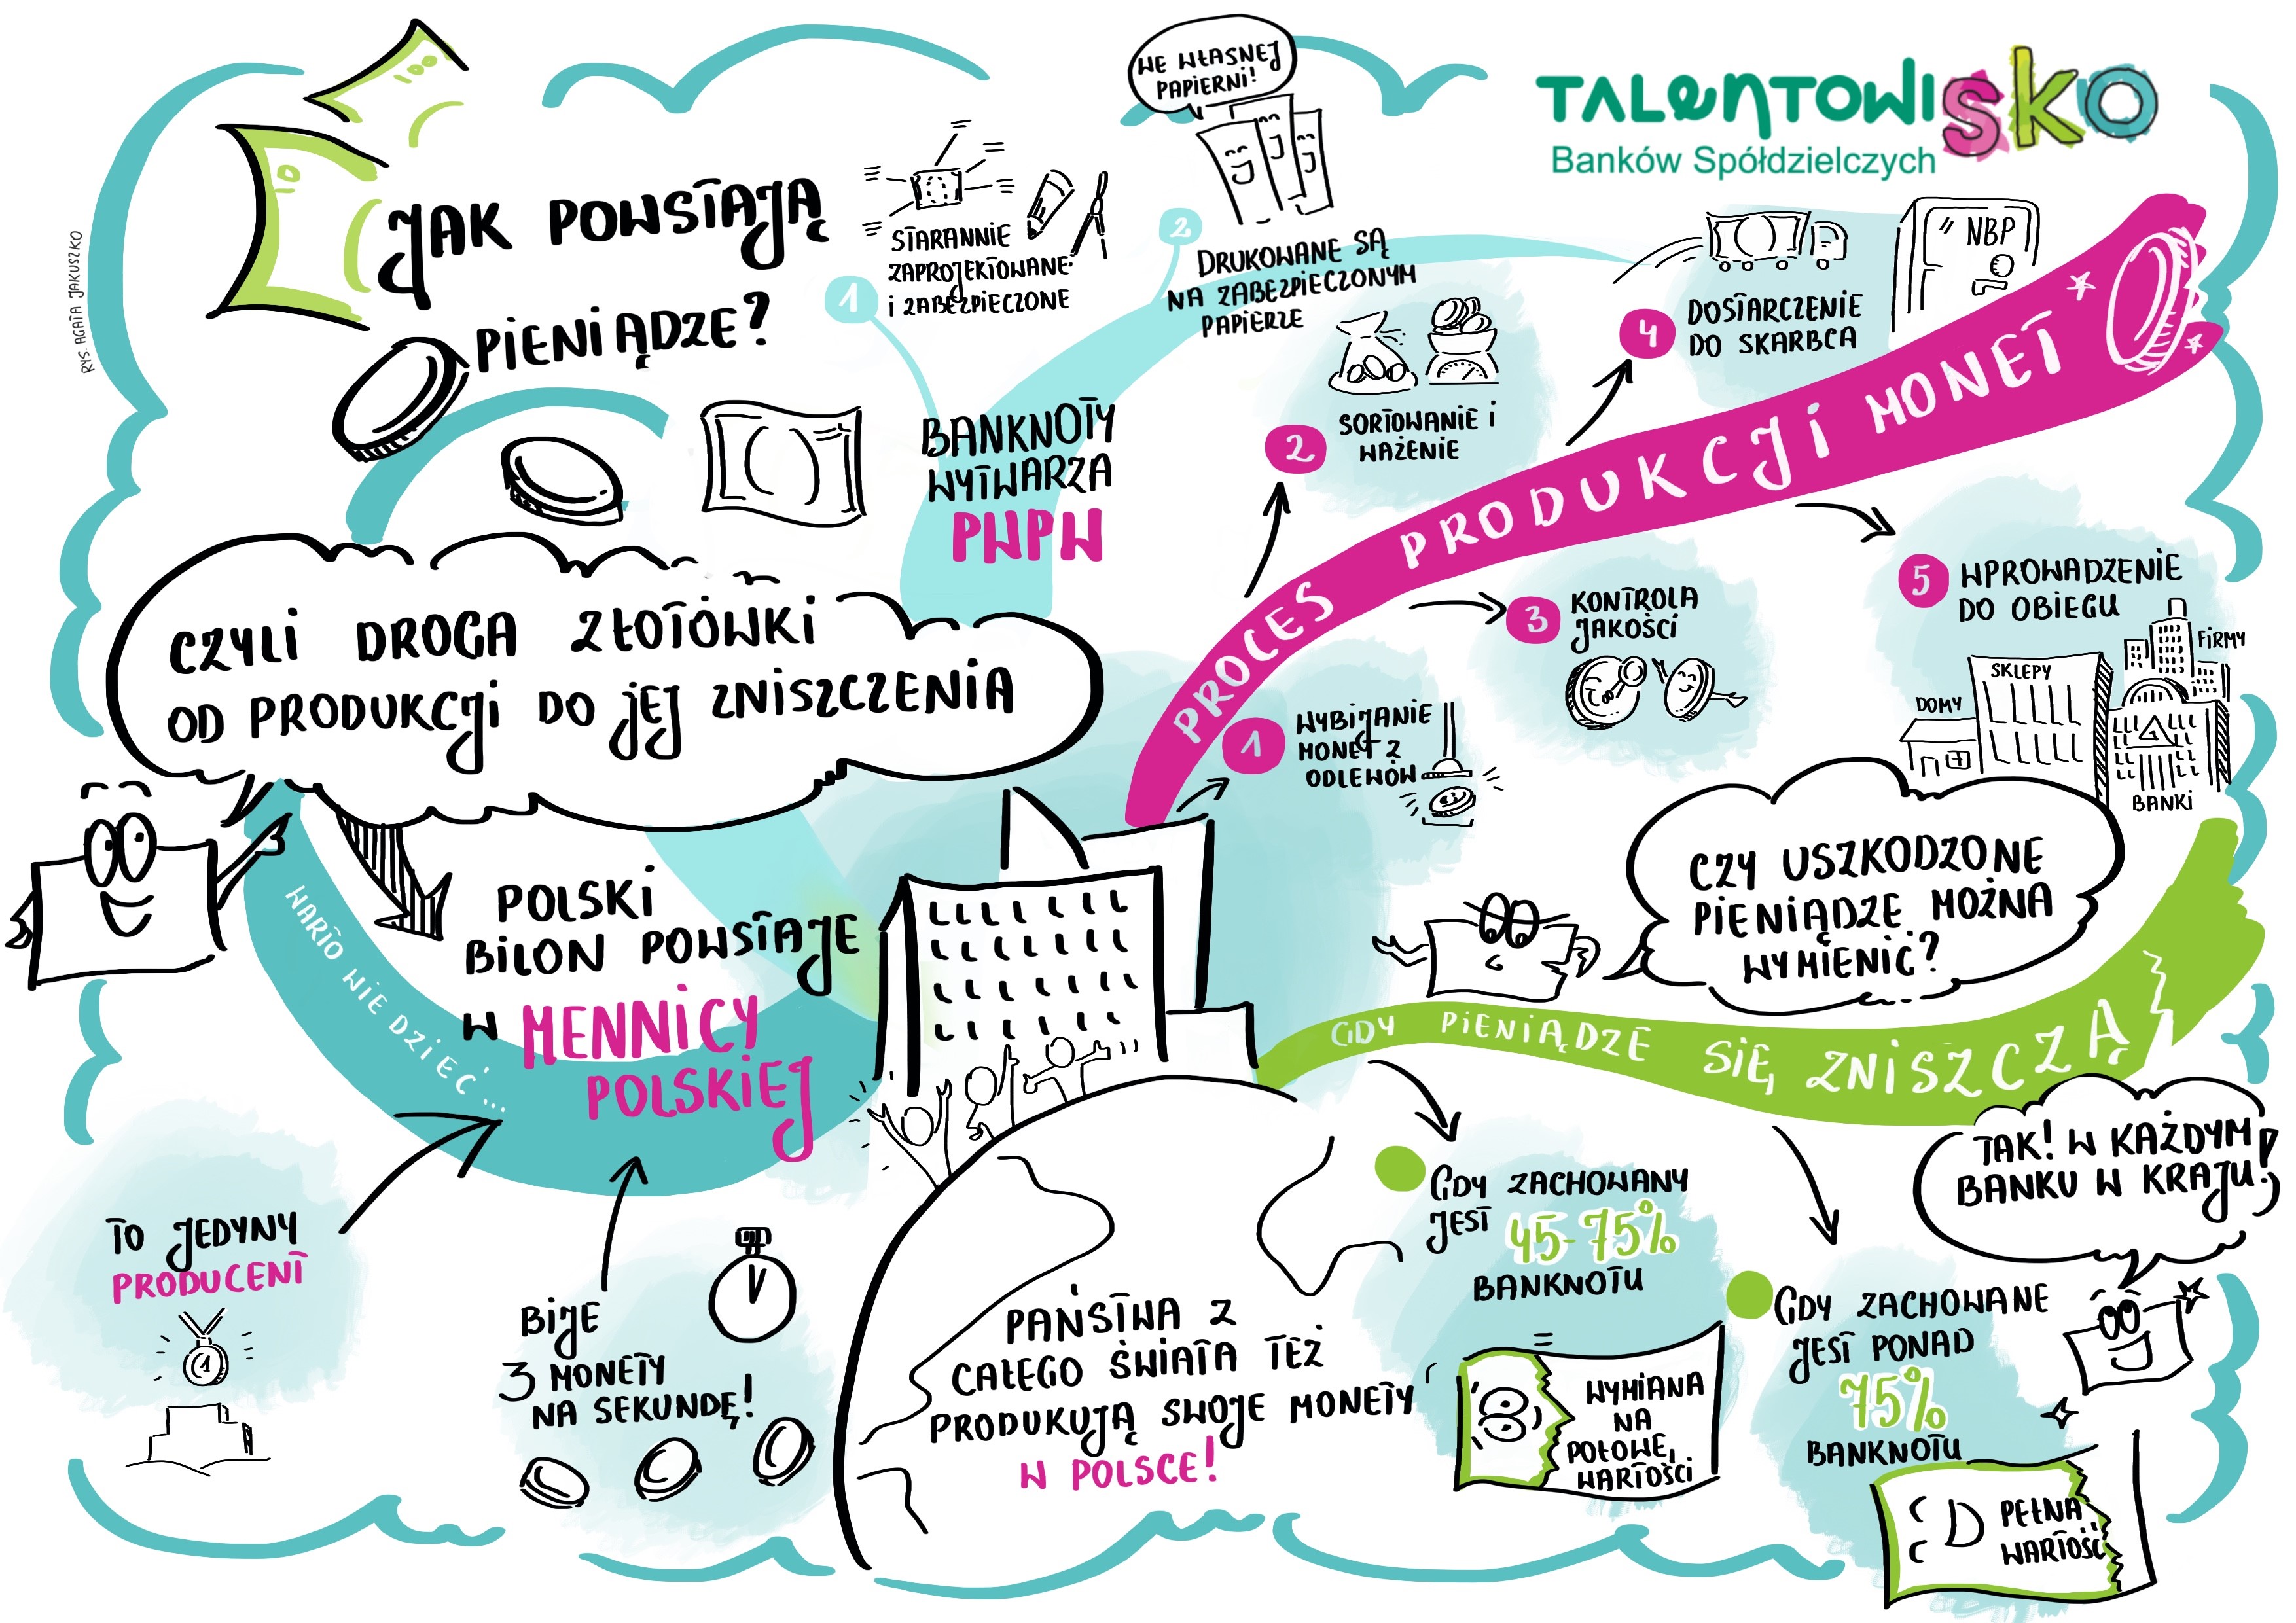 JAK POWSTAJĄ
PIENIĄDZE?
100
10
RYS. AGATA JAKUSZKO
CZYLI DROGA ZŁOTÓWKI
OD PRODUKCJI DO JEJ ZNISZCZENIA
TALENTOWISKO
Banków Spółdzielczych
BANKNOTY
WYTWARZA
PWPW
1
STARANNIE
ZAPROJEKTOWANE
I ZABEZPIECZONE
2
WE WŁASNEJ
PAPIERNI!
DRUKOWANE SĄ
NA ZABEZPIECZONYM
PAPIERZE
PROCES PRODUKCJI MONET
1
WYBIJANIE
MONET Z
ODLEWÓW
2
SORTOWANIE I
WAŻENIE
3
KONTROLA
JAKOŚCI
4
DOSTARCZENIE
DO SKARBCA
NBP
5
WPROWADZENIE
DO OBIEGU
DOMY
SKLEPY
FIRMY
BANKI
WARTO WIEDZIEĆ...
POLSKI
BILON POWSTAJE
W MENNICY
POLSKIEJ
TO JEDYNY
PRODUCENT
1
BIJE
3 MONETY
NA SEKUNDĘ!
PAŃSTWA Z
CAŁEGO ŚWIATA TEŻ
PRODUKUJĄ SWOJE MONETY
W POLSCE!
GDY PIENIĄDZE SIĘ ZNISZCZĄ
CZY USZKODZONE
PIENIĄDZE MOŻNA
WYMIENIĆ?
TAK! W KAŻDYM
BANKU W KRAJU!
GDY ZACHOWANY
JEST 45-75%
BANKNOTU
WYMIANA
NA
POŁOWĘ
WARTOŚCI
GDY ZACHOWANE
JEST PONAD
75%
BANKNOTU
PEŁNA
WARTOŚĆ